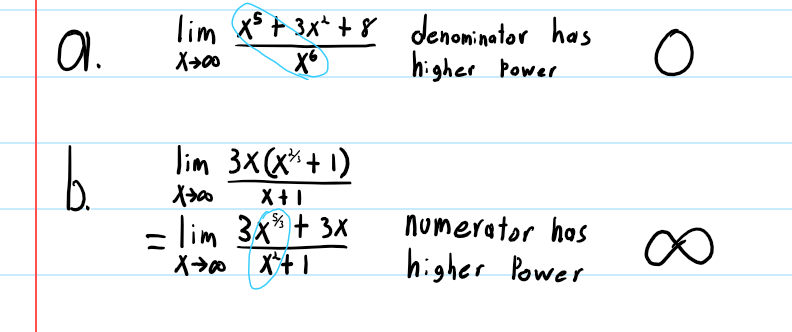 a. lim x→∞ (x⁵ + 3x² + 8)/x⁶ denominator has higher power 0
b. lim x→∞ 3x(x^(2/3) + 1)/(x + 1)
= lim x→∞ (3x^(5/3) + 3x)/(x² + 1) numerator has higher power ∞